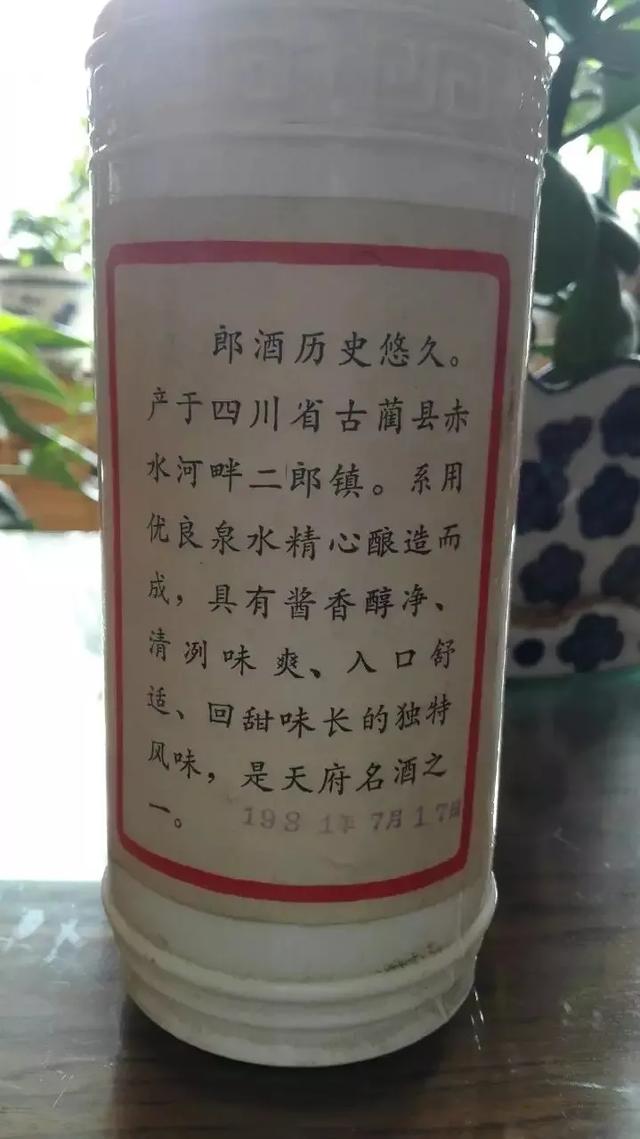 郎酒历史悠久。
产于四川省古蔺县赤
水河畔二郎镇。系用
优良泉水精心酿造而
成，具有酱香醇净、
清冽味爽、入口舒
适、回甜味长的独特
风味，是天府名酒之
一。 1981年7月17日